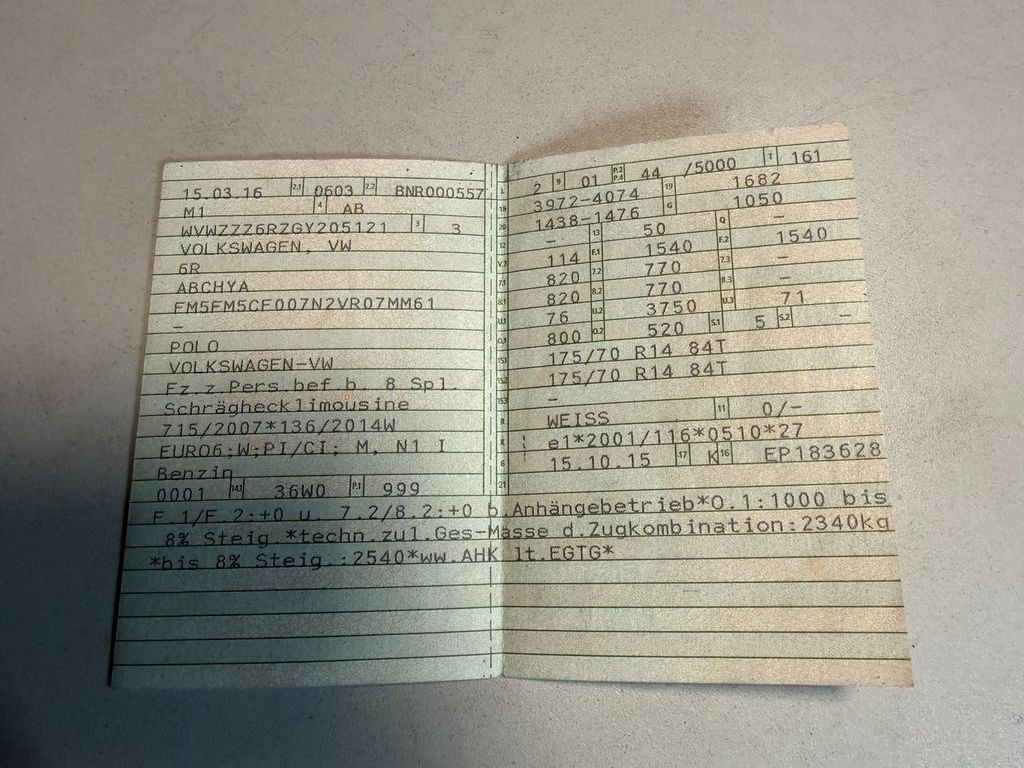 15.03.16 2.1 0603 2.2 BNR000557
M1 4 AB
WVWZZZ6RZGY205121 3 3
VOLKSWAGEN, VW
6R
ABCHYA
FM5FM5CF007N2VR07MM61
–
POLO
VOLKSWAGEN-VW
Fz.z.Pers.bef.b. 8 Spl.
Schräghecklimousine
715/2007*136/2014W
EURO6;W;PI/CI; M, N1 I
Benzin
0001 14.1 36W0 P.1 999
L 2 9 01 P.2 P.4 44 /5000 T 161
18 3972-4074 19 1682
20 1438-1476 G 1050
12 – 13 50 Q –
V.7 114 F.1 1540 F.2 1540
7.1 820 7.2 770 7.3 –
8.1 820 8.2 770 8.3 –
U.1 76 U.2 3750 U.3 71
O.1 800 O.2 520 S.1 5 S.2 –
15.1 175/70 R14 84T
15.2 175/70 R14 84T
15.3 –
R WEISS 11 0/–
K e1*2001/116*0510*27
6 15.10.15 17 K 16 EP183628
21
F.1/F.2:+0 u. 7.2/8.2:+0 b.Anhängebetrieb*O.1:1000 bis
8% Steig.*techn.zul.Ges-Masse d.Zugkombination:2340kg
*bis 8% Steig.:2540*ww.AHK lt.EGTG*